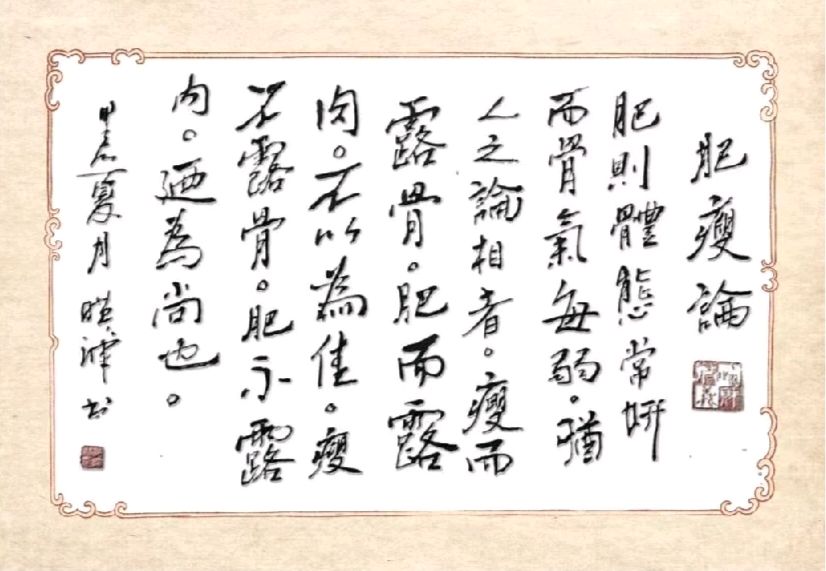 肥瘦論
肥則體態常妍
而骨氣每弱。猶
人之論相者。瘦而
露骨。肥而露
肉。不以為佳。瘦
不露骨。肥不露
肉。迺為尚也。
甲辰夏月 書